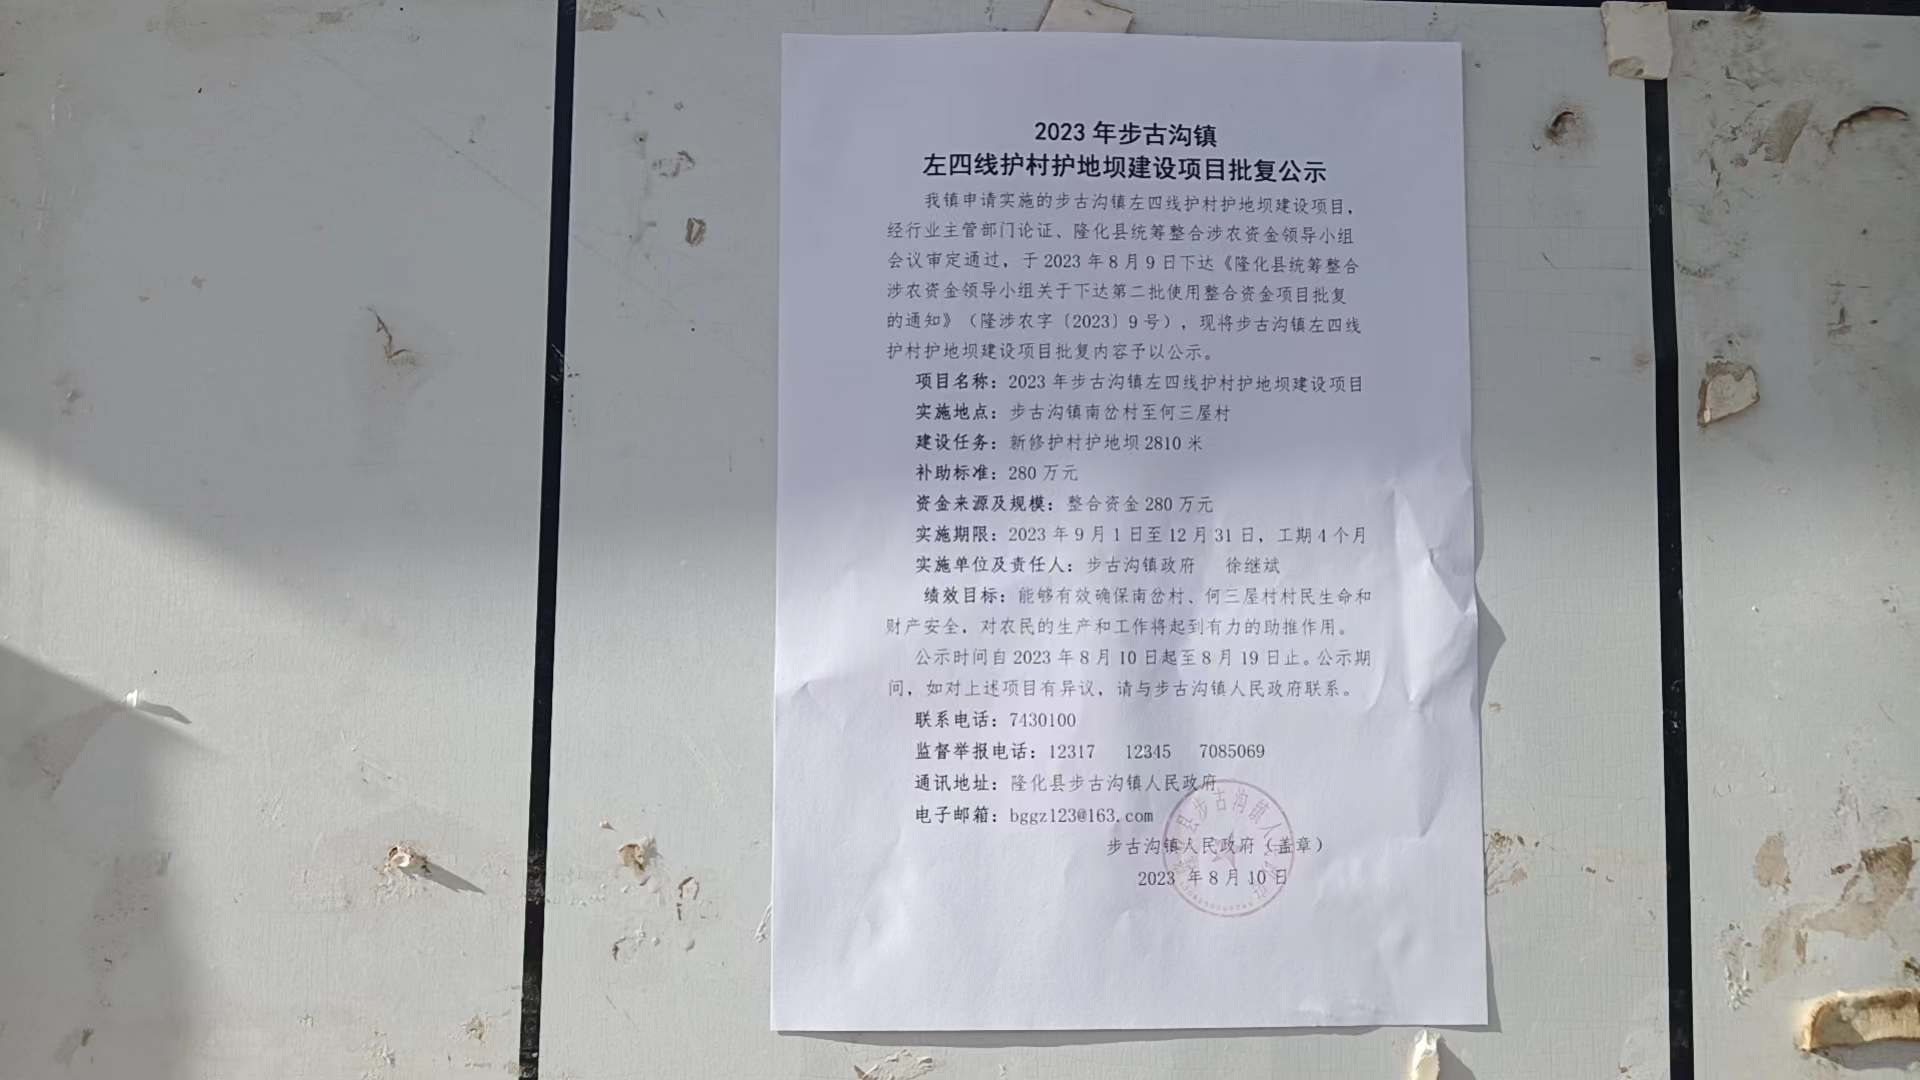 2023 年步古沟镇
左四线护村护地坝建设项目批复公示
我镇申请实施的步古沟镇左四线护村护地坝建设项目，
经行业主管部门论证、隆化县统筹整合涉农资金领导小组
会议审定通过，于 2023 年 8 月 9 日下达《隆化县统筹整合
涉农资金领导小组关于下达第二批使用整合资金项目批复
的通知》（隆涉农字〔2023〕9 号），现将步古沟镇左四线
护村护地坝建设项目批复内容予以公示。
项目名称：2023 年步古沟镇左四线护村护地坝建设项目
实施地点：步古沟镇南岔村至何三屋村
建设任务：新修护村护地坝 2810 米
补助标准：280 万元
资金来源及规模：整合资金 280 万元
实施期限：2023 年 9 月 1 日至 12 月 31 日，工期 4 个月
实施单位及责任人：步古沟镇政府 徐继斌
绩效目标：能够有效确保南岔村、何三屋村村民生命和
财产安全，对农民的生产和工作将起到有力的助推作用。
公示时间自 2023 年 8 月 10 日起至 8 月 19 日止。公示期
间，如对上述项目有异议，请与步古沟镇人民政府联系。
联系电话：7430100
监督举报电话：12317 12345 7085069
通讯地址：隆化县步古沟镇人民政府
电子邮箱：bggz123@163.com
步古沟镇人民政府（盖章）
2023 年 8 月 10 日
县步古沟镇人